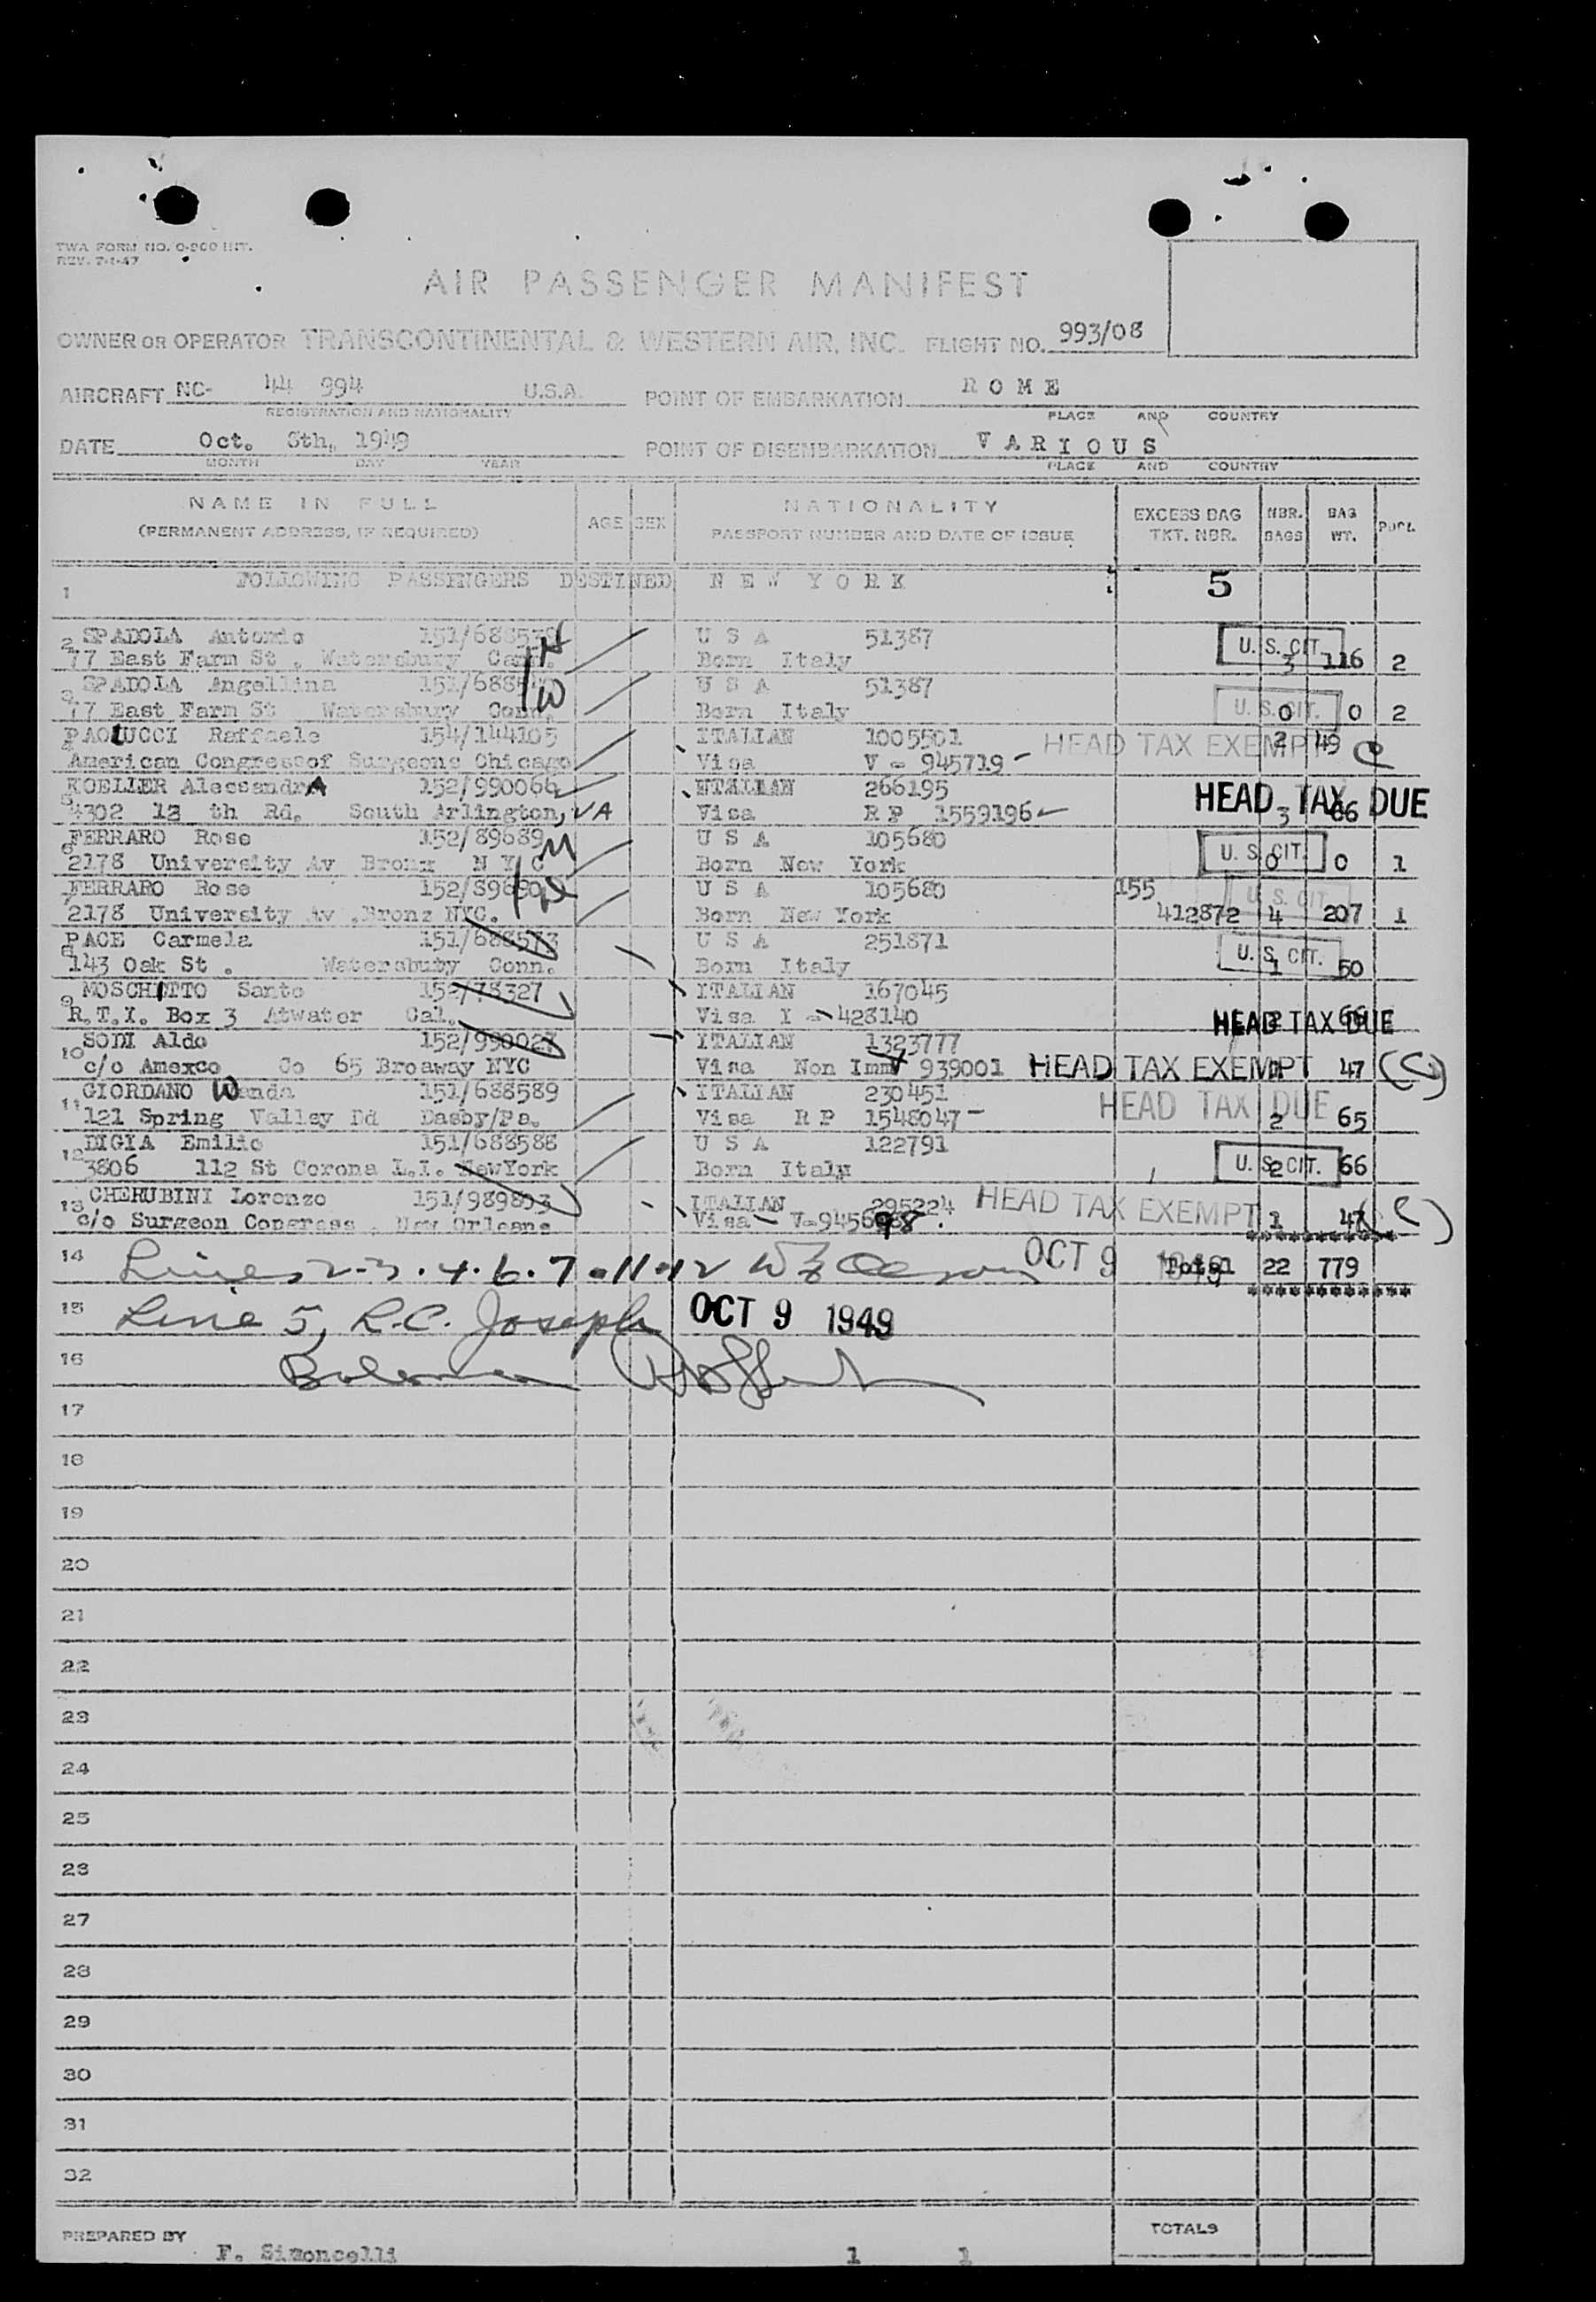 TWA FORM NO. O-200 INT.
REV. 7-1-47
AIR PASSENGER MANIFEST
OWNER OR OPERATOR TRANSCONTINENTAL & WESTERN AIR, INC. FLIGHT NO. 993/08
AIRCRAFT NC- 44 994 U.S.A. POINT OF EMBARKATION ROME
REGISTRATION AND NATIONALITY PLACE AND COUNTRY
DATE Oct. 8th, 1949 POINT OF DISEMBARKATION VARIOUS
MONTH DAY YEAR PLACE AND COUNTRY
NAME IN FULL AGE SEX NATIONALITY EXCESS BAG NBR. BAG
(PERMANENT ADDRESS, IF REQUIRED) PASSPORT NUMBER AND DATE OF ISSUE TKT. NBR. BAGS WT.
1 FOLLOWING PASSENGERS DESTINED NEW YORK : 5
2 SPADOLA Antonio U S A 51387 U.S. CIT.
77 East Farm St . Watersbury Conn. Born Italy 3 116 2
3 SPADOLA Angellina U S A 51387
77 East Farm St Watersbury Conn. Born Italy U.S. CIT. 0 0 2
4 PAOLUCCI Raffaele 154/144105 ITALIAN 1005501 HEAD TAX EXEMPT 2 49
American Congressof Surgeons Chicago Visa V - 945719
5 KOELLER AlessandrA 152/990066 ITALIAN 266195 HEAD TAX DUE
4302 12 th Rd. South Arlington, VA Visa R P 1559196 3 66
6 FERRARO Rose 152/89689 M U S A 105680
2178 University Av Bronx N Y C Born New York U.S. CIT. 0 0 1
7 FERRARO Rose U S A 105680 155 U.S. CIT.
2178 University Av .Bronz NYC. Born New York 412872 4 207 1
8 PACE Carmela 151/688573 U S A 251871
143 Oak St . Watersbuty Conn. Born Italy U.S. CIT. 1 50
9 MOSCHITTO Santo 152/78327 ITALIAN 167045
R.T.I. Box 3 Atwater Cal. Visa I - 428140 HEAD TAX DUE
10 SODI Aldo 152/990027 ITALIAN 1323777
c/o Amexco Co 65 Broaway NYC Visa Non Imm V 939001 HEAD TAX EXEMPT 47 (C)
11 GIORDANO Wanda 151/688589 ITALIAN 230451 HEAD TAX DUE
121 Spring Valley Rd Dasby/Pa. Visa R P 1548047 2 65
12 DIGIA Emilio 151/688588 U S A 122791
3806 112 St Corona L.I. NewYork Born Italy U.S. CIT. 2 66
13 CHERUBINI Lorenzo 151/989803 ITALIAN 295224 HEAD TAX EXEMPT
c/o Surgeon Congress , New Orleans Visa V-945698 1 47 (C)
14 Lines 2-3.4.6.7.11.12 OCT 9 1949 Total 22 779
15 Line 5, R.C. Joseph OCT 9 1949
16
17
18
19
20
21
22
23
24
25
26
27
28
29
30
31
32
TOTALS
PREPARED BY F. Simoncelli 1 1